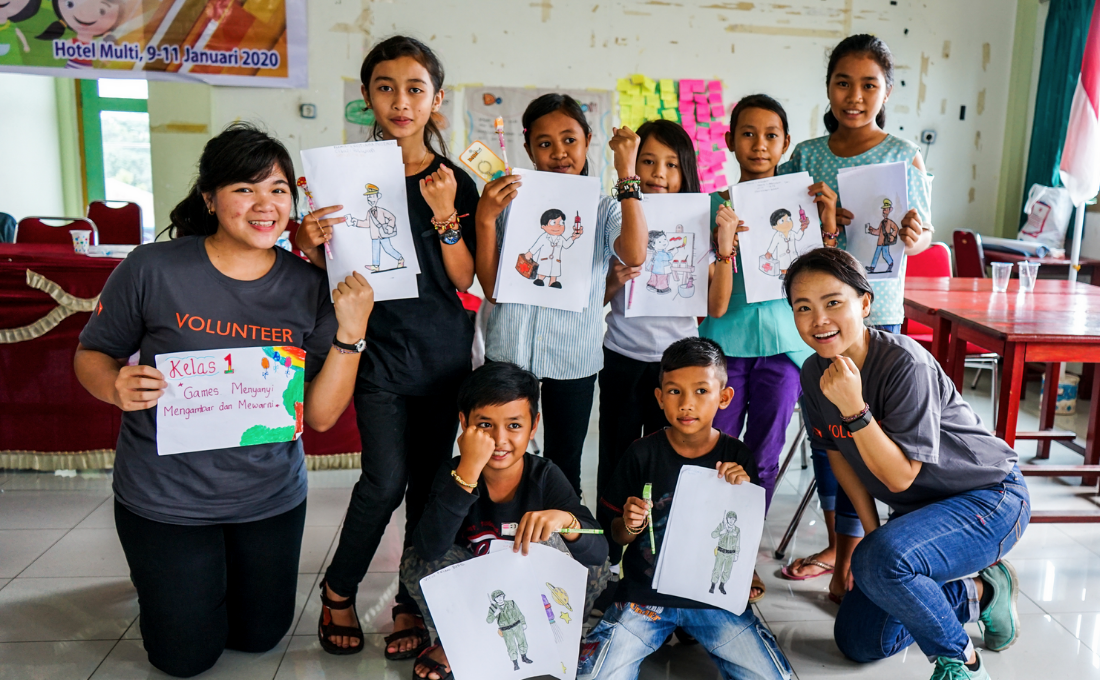 Hotel Multi, 9-11 Januari 2020
VOLUNTEER
Kelas 1
"Games Menyanyi
Mengambar dan Mewarni.
VOLU